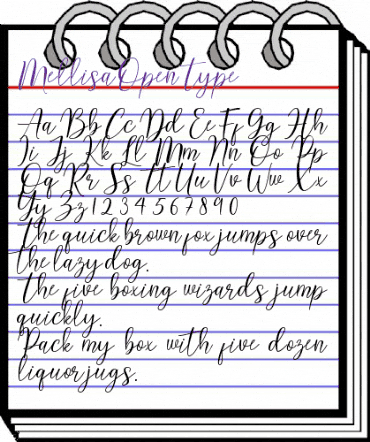 Mellisa Open Type
Aa Bb Cc Dd Ee Ff Gg Hh
Ii Jj Kk Ll Mm Nn Oo Pp
Qq Rr Ss Tt Uu Vv Ww Xx
Yy Zz 1 2 3 4 5 6 7 8 9 0
The quick brown fox jumps over
the lazy dog.
The five boxing wizards jump
quickly.
Pack my box with five dozen
liquor jugs.